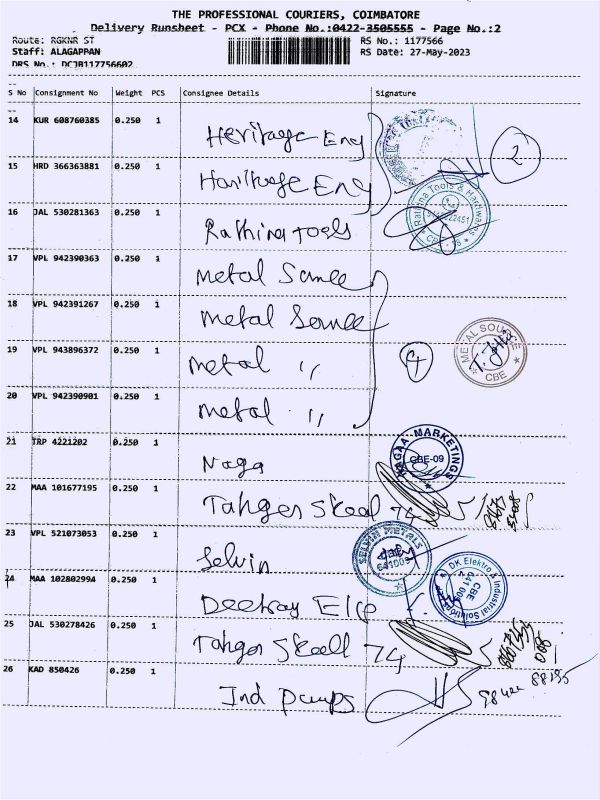 THE PROFESSIONAL COURIERS, COIMBATORE
Delivery Runsheet - PCX - Phone No.:0422-3505555 - Page No.:2
Route: RGKNR ST RS No.: 1177566
Staff: ALAGAPPAN RS Date: 27-May-2023
DRS No.: DCJB117756602
S No Consignment No Weight PCS Consignee Details Signature
14 KUR 608760385 0.250 1 Heritage Eng
2
15 HRD 366363881 0.250 1 Heritage Eng
Rathina Tools & Hardwares
16 JAL 530281363 0.250 1 Rathina Tools
17 VPL 942390363 0.250 1 Metal Source
18 VPL 942391267 0.250 1 Metal Source
19 VPL 943896372 0.250 1 Metal ,,
4
METAL SOURCE CBE
20 VPL 942390901 0.250 1 Metal ,,
NAGAA MARKETINGS CBE-09
21 TRP 4221202 0.250 1 Naga
22 MAA 101677195 0.250 1 74
23 VPL 521073053 0.250 1 Selvin
SELVIN METALS
24 MAA 102802994 0.250 1
DK Elektro & Industrial Solutions CBE
25 JAL 530278426 0.250 1 74
26 KAD 850426 0.250 1 Ind Pumps